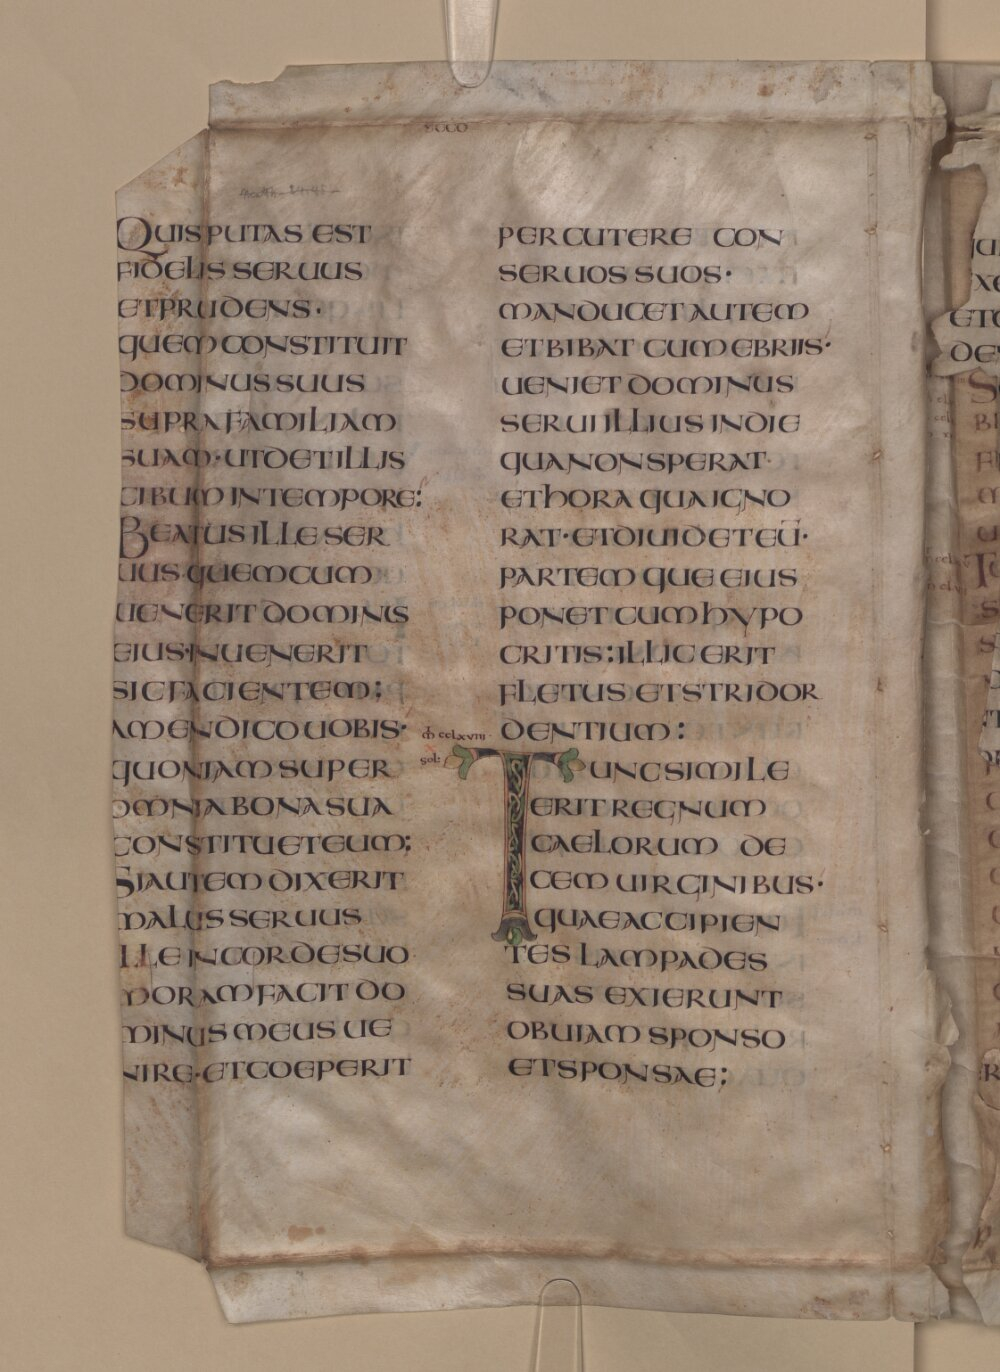 QUIS PUTAS EST
FIDELIS SERUUS
ET PRUDENS·
QUEM CONSTITUIT
DOMINUS SUUS
SUPRA FAMILIAM
SUAM· UT DET ILLIS
CIBUM IN TEMPORE:
BEATUS ILLE SER
UUS QUEM CUM
UENERIT DOMINUS
EIUS· INUENERIT
SIC FACIENTEM:
AMEN DICO UOBIS·
QUONIAM SUPER
OMNIA BONA SUA
CONSTITUET EUM:
SI AUTEM DIXERIT
MALUS SERUUS
ILLE IN CORDE SUO
MORAM FACIT DO
MINUS MEUS UE
NIRE· ET COEPERIT
PERCUTERE CON
SERUOS SUOS·
MANDUCET AUTEM
ET BIBAT CUM EBRIIS·
UENIET DOMINUS
SERUI ILLIUS IN DIE
QUA NON SPERAT·
ET hORA QUA IGNO
RAT· ET DIUIDET EŪ·
PARTEM QUE EIUS
PONET CUM hYPO
CRITIS: ILLIC ERIT
FLETUS ET STRIDOR
DENTIUM:
m̄ cclxviii·
sol:
TUNC SIMILE
ERIT REGNUM
CAELORUM DE
CEM UIRGINIBUS·
QUAE ACCIPIEN
TES LAMPADES
SUAS EXIERUNT
OBUIAM SPONSO
ET SPONSAE: